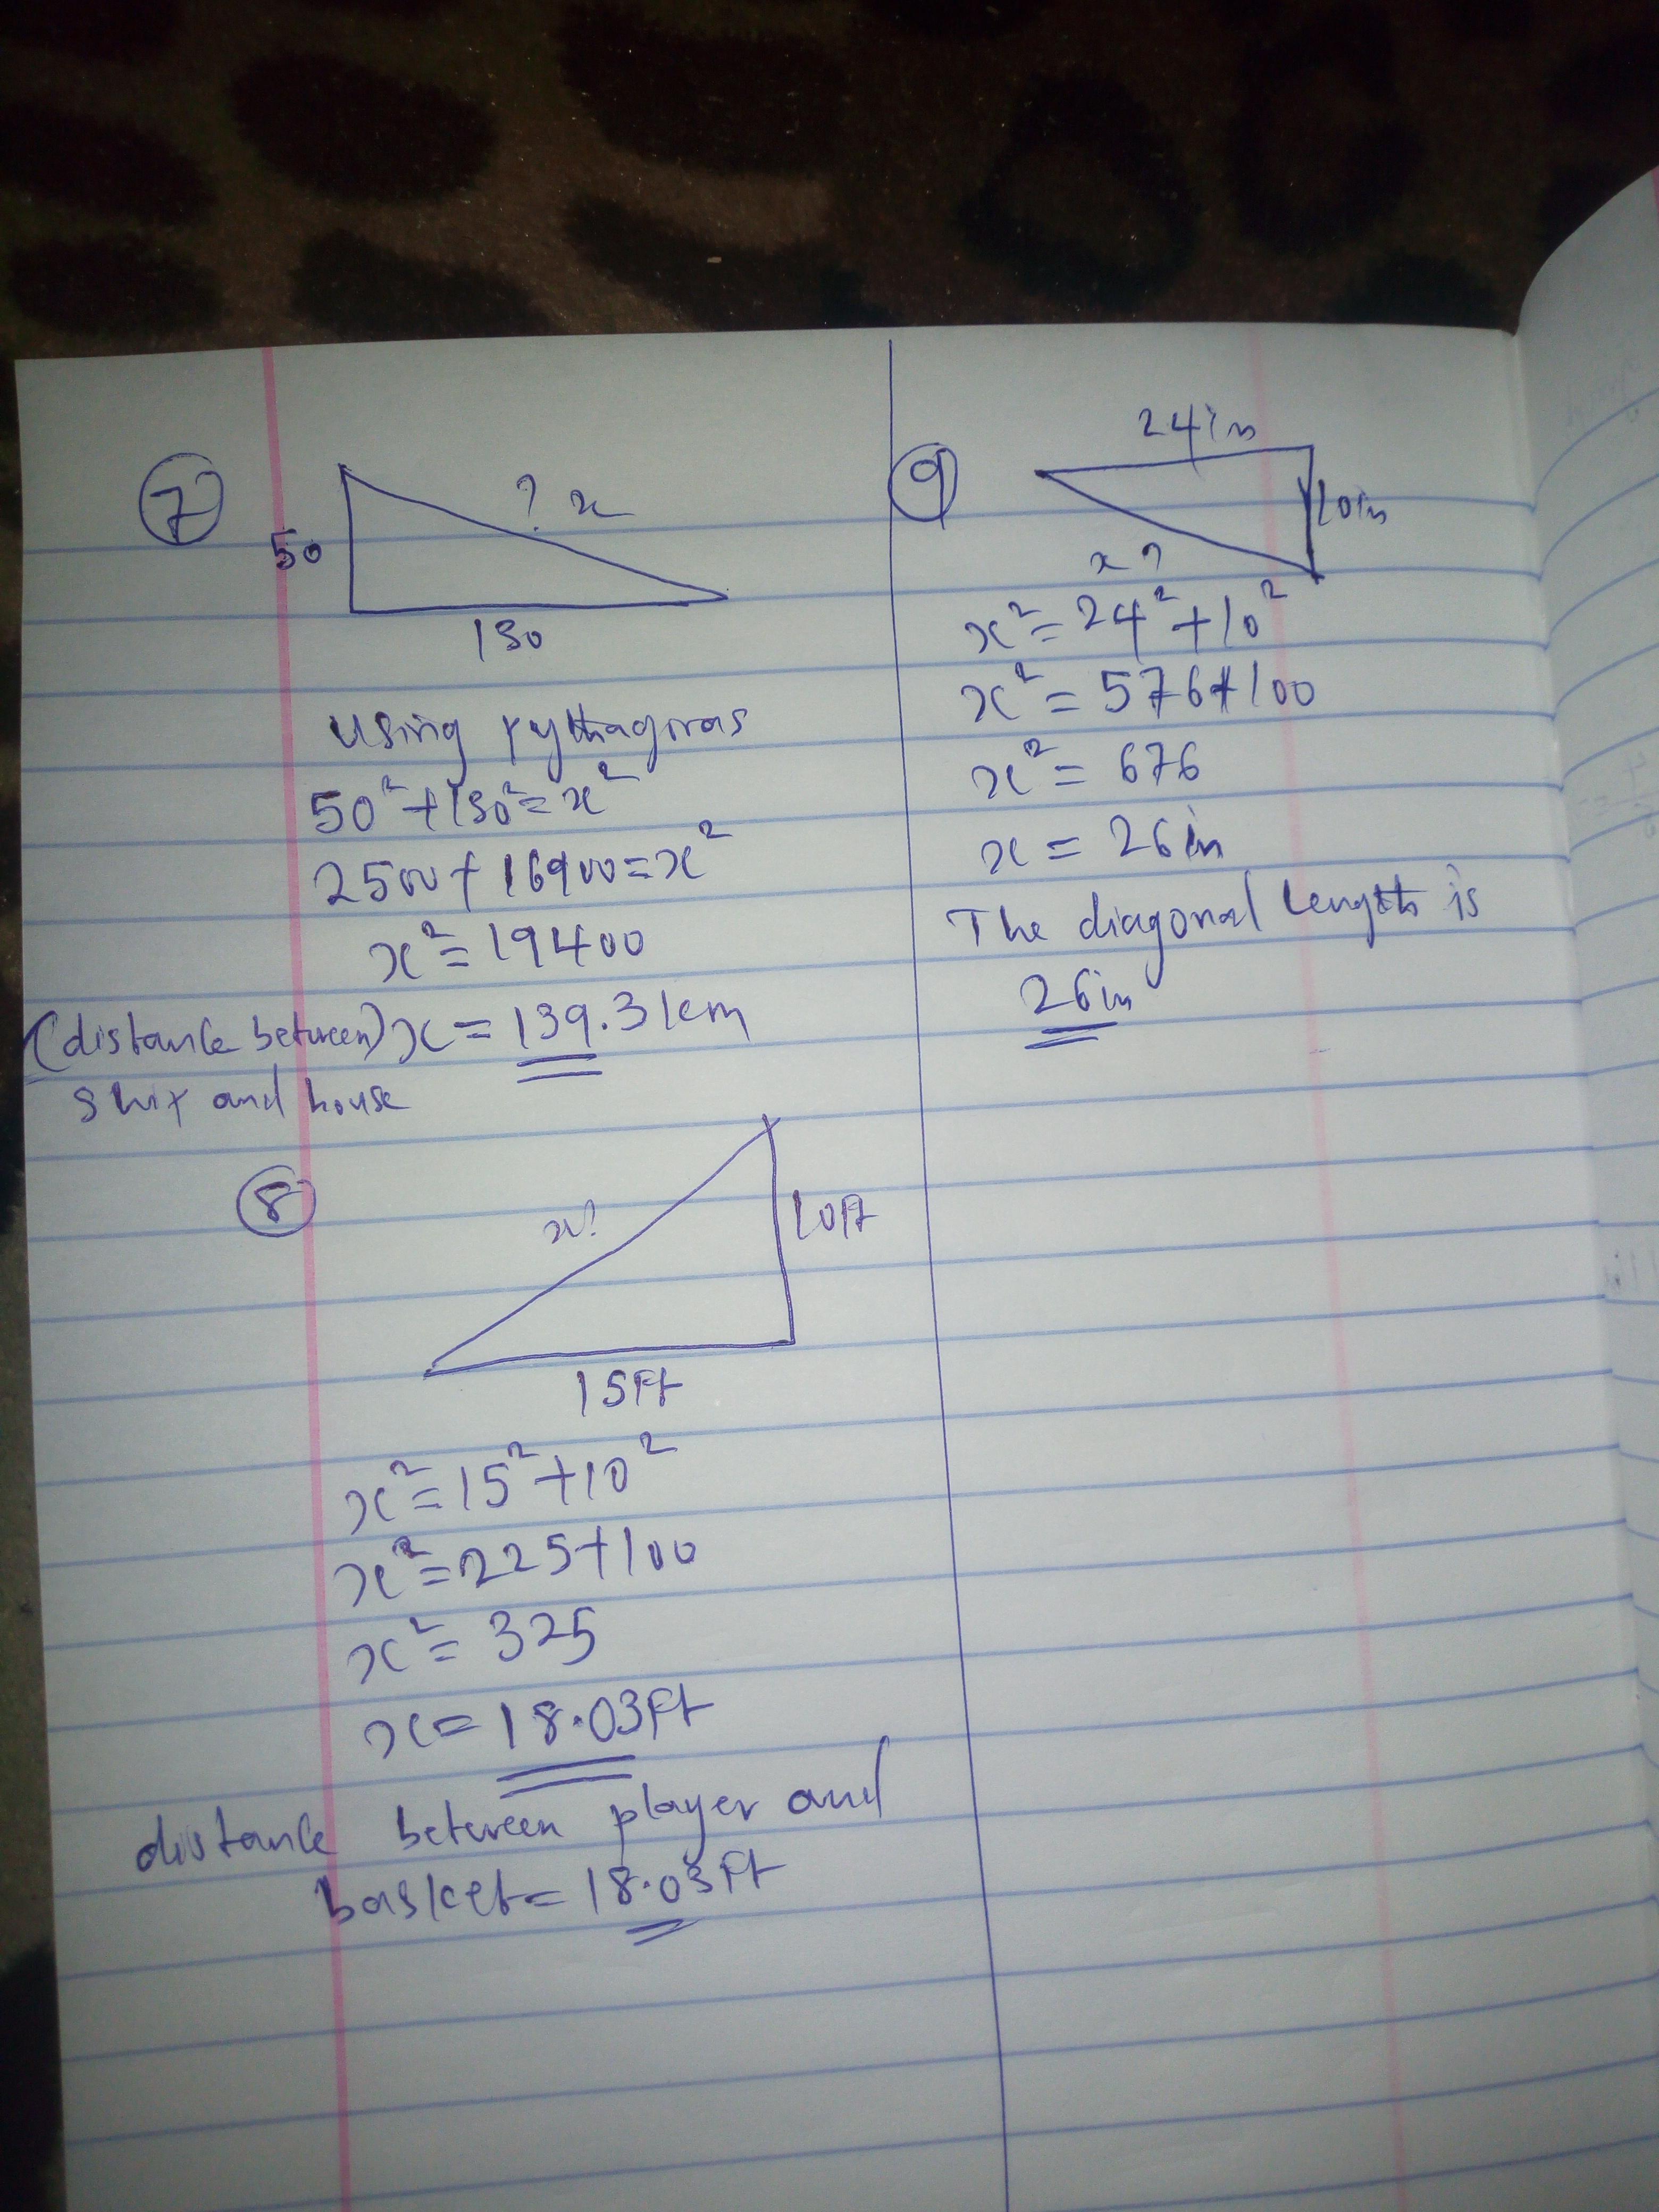 7
? x
50
130
Using Pythagoras
50² + 130² = x²
2500 + 16900 = x²
x² = 19400
(distance between) x = 139.3km
ship and house
8
x?
10ft
15Ft
x² = 15² + 10²
x² = 225 + 100
x² = 325
x = 18.03Ft
distance between player and
basket = 18.03Ft
9
24in
10in
x ?
x² = 24² + 10²
x² = 576 + 100
x² = 676
x = 26in
The diagonal length is
26in